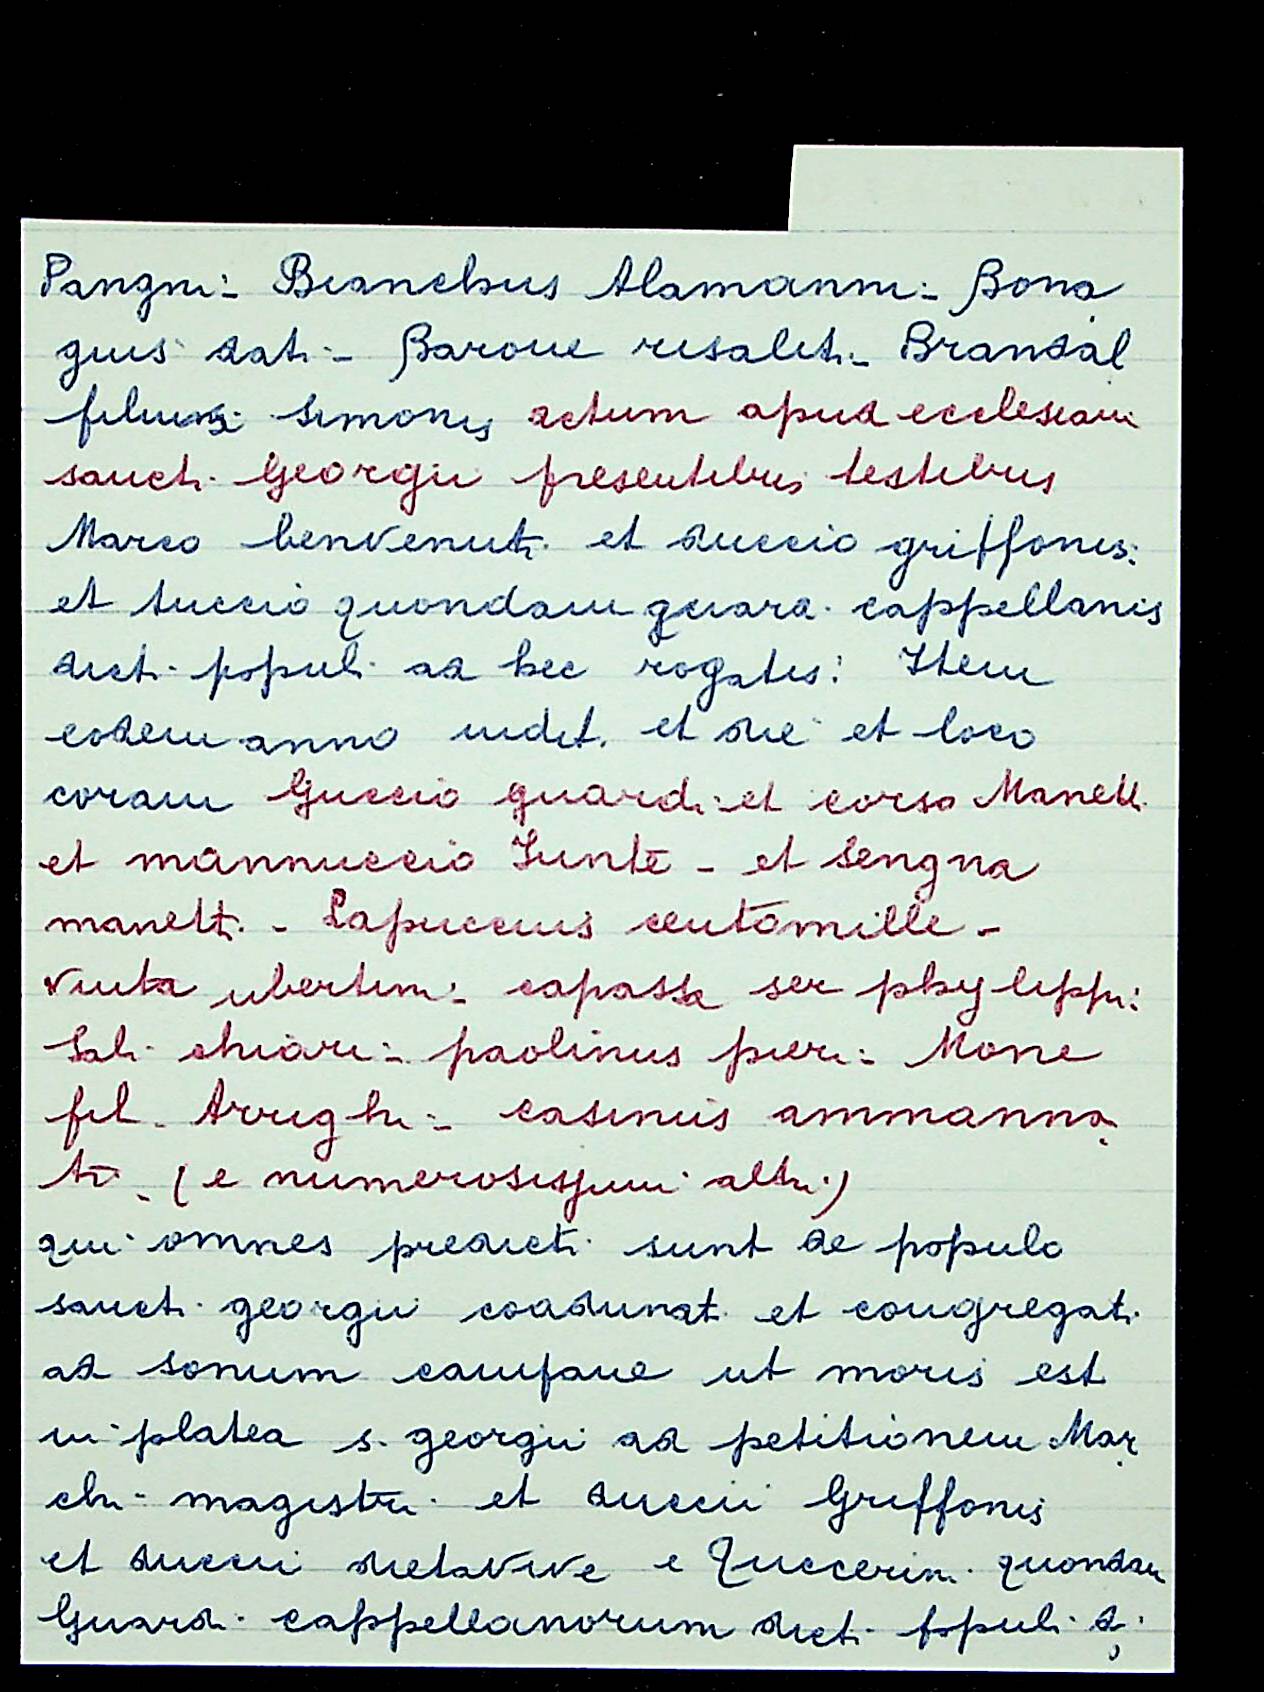 Pangni - Bianchus Alamanni - Bona
guis dati - Barone risaliti - Brandal
filius Simonis actum apud ecclesiam
sancti Georgii presentibus testibus
Marco benvenuti et duccio griffonis
et tuccio quondam guard. cappellanis
dicti populi ad hec rogatis: Item
eodem anno indit. et die et loco
coram Guccio guardi et corso Manetti
et mannuccio Iunte - et Sengna
manetti - Lapuccius centomille -
Vinta ubertini - capassa ser phylippi
Sali chiari - paolinus pieri - Mone
fil. Arrighi - casinus ammanna
ti - (e numerosissimi altri)
qui omnes predicti sunt de populo
sancti georgii coadunati et congregati
ad sonum campane ut moris est
in platea s. georgii ad petitionem Mar
chi magistri et duccii Griffonis
et duccii dietavive e Zuccerini quondam
Guardi cappellanorum dicti populi d.